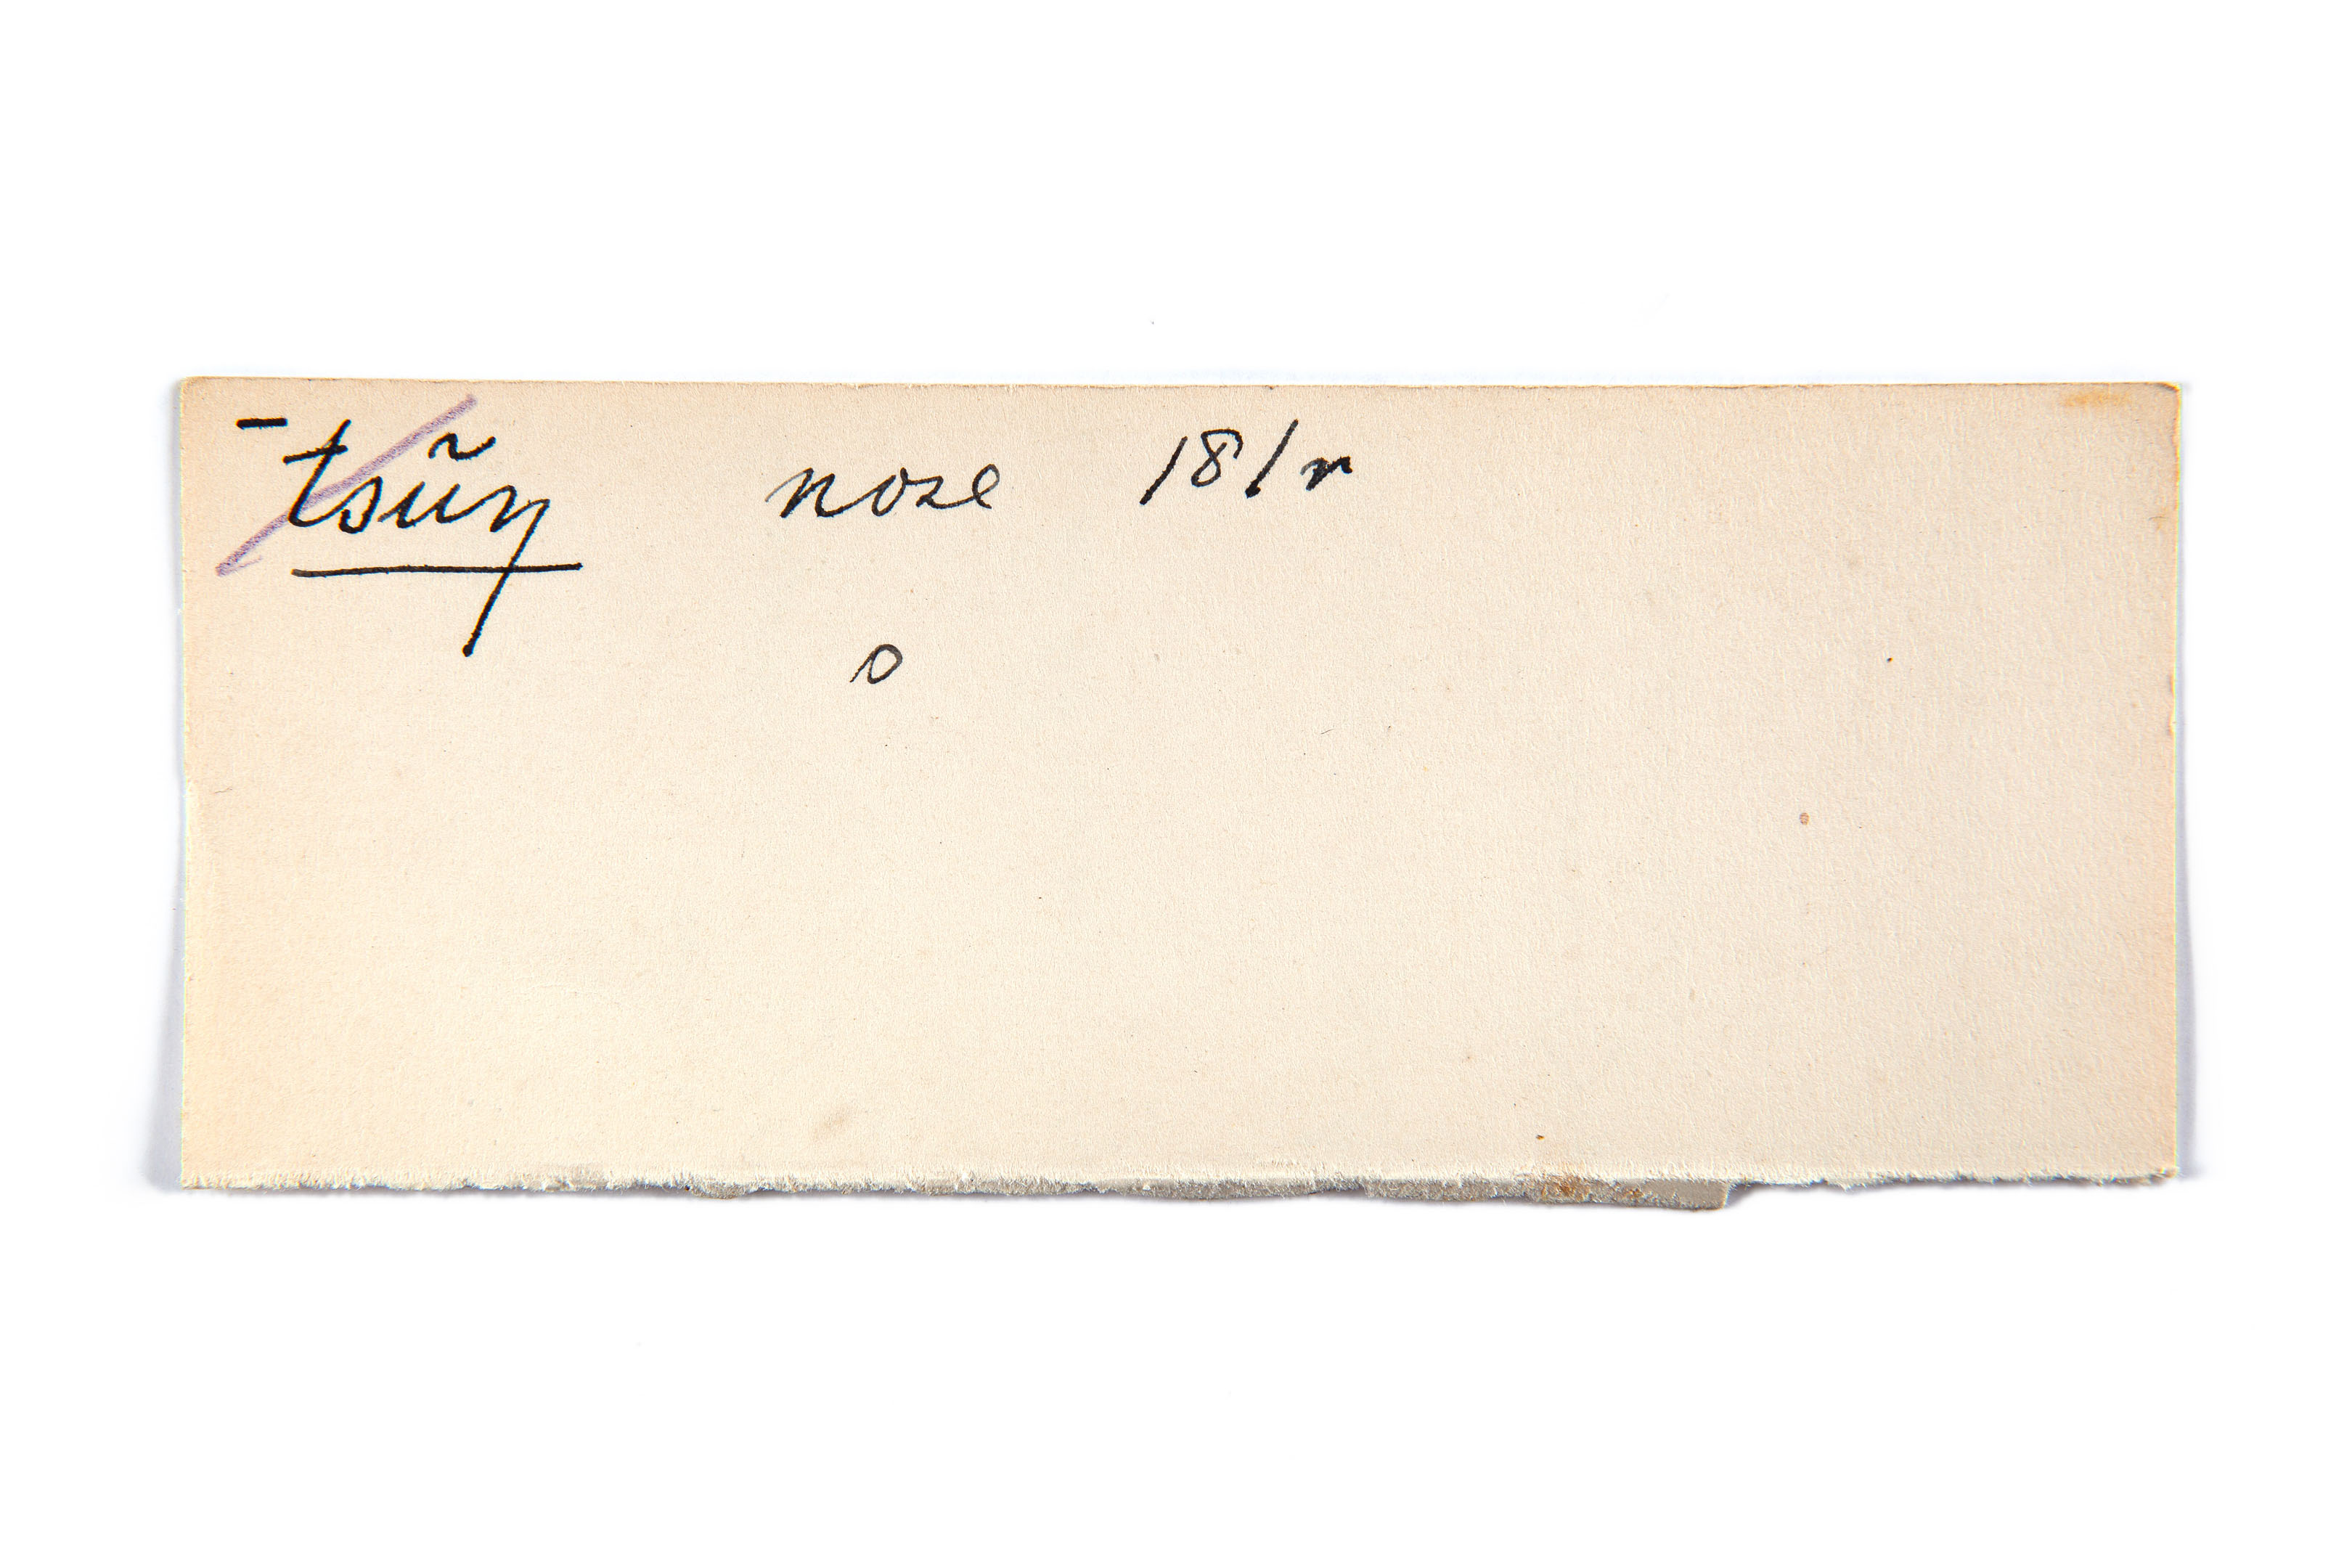 -tsũŋ nose 181r
o